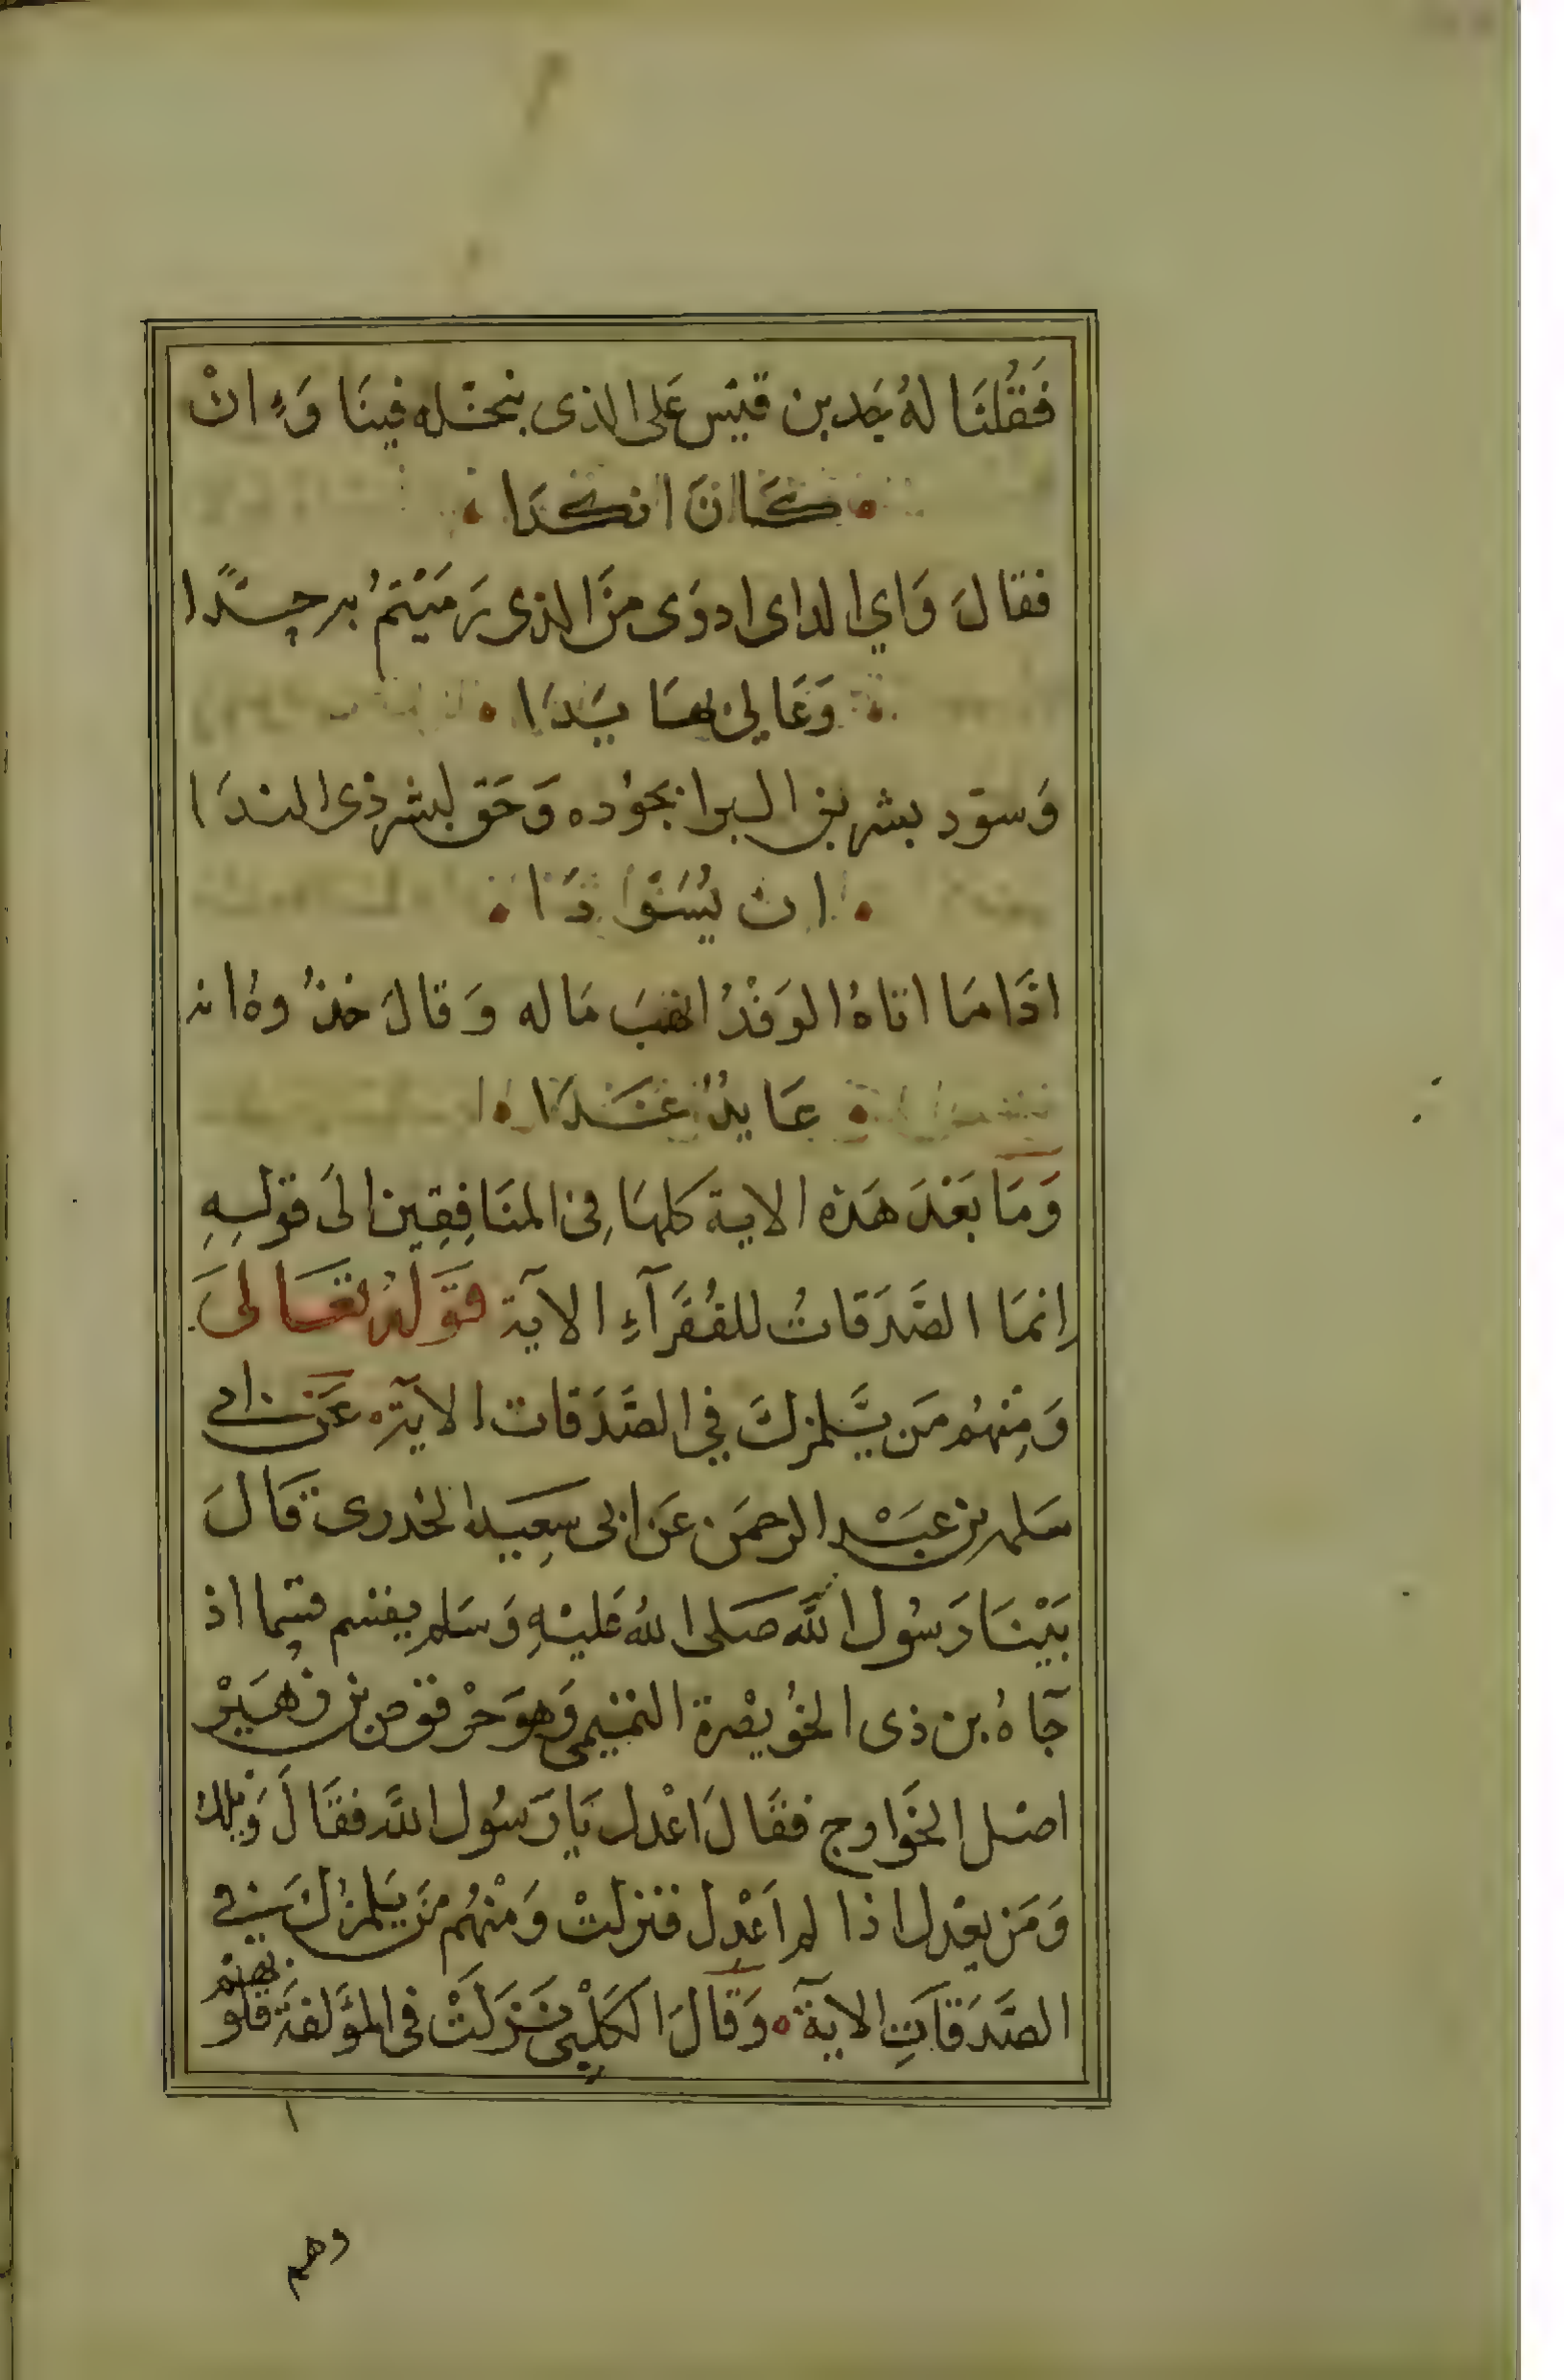 فَقُلنَا لهُ جَد بن قيَس عَلى الذى بنحّله فينَا وَءِ انْ
كَانَ انكدَا
فقالَ وَاي الداى ادوَى منَ الذى رَميْتمُ به جدًا
وَعَالى بهَا يَدَا
وَسوّد بشر بن البرا بجوُده وَحَق لبشر ذى الندَا
ان يُسَوّا دَا
اذَا مَا اتاهُ الوَفْدُ انهبَ مَاله وَقالَ خذُوهُ انه
عَايدُ غَدَا
وَمَا بَعْدَ هَذه الاية كلهَا فى المنَافِقِين الىَ قوْلهِ
اِنمَا الصَّدَقاتُ للفُقَرَآءِ الآية قوَلهُ تعَالىَ
وَمِنْهُم مَن يَّلمزكَ فِي الصَّدَقات الآية عَن ابى
سَلمه بن عبَدْ الرحمَن عَن ابى سَعِيد الخدرى قَالَ
بَيْنَا رَسُول اللَّه صَلى اللهُ عَليْهِ وَسَلم يقسم قسِما اذ
جَآهُ بن ذى الخوُيصْرة التميمى وَهوَ حرْقوص بن زهَيْر
اصْل الخَوارج فقَالَ اعْدل يَا رَسُول اللَّه فقَالَ وَيْلكَ
وَمَن يعْدل اذا لم اَعْدل فنزلتْ وَمنْهُم مَن يَلمزُكَ فى
الصَّدَقاتِ الآيةَ وَقالَ الكَلْبِى نَزَلَتْ فى المؤَلفَة قلو
بهم
وهم